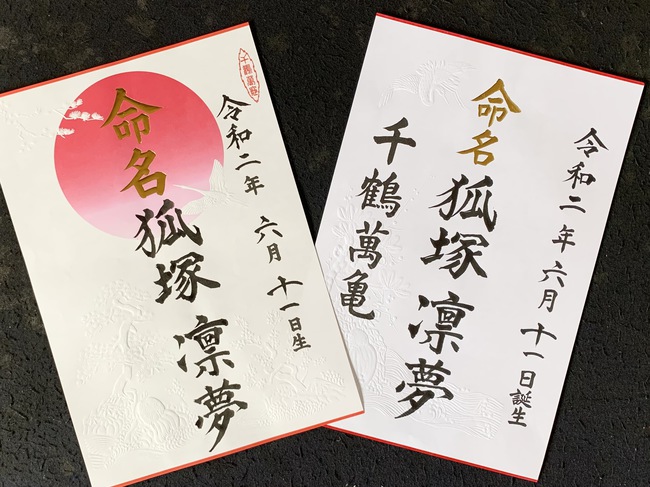 千鶴萬亀
令和二年 六月 十一日生
命名 狐塚 凛夢
令和二年 六月 十一日誕生
命名 狐塚 凛夢
千鶴萬亀